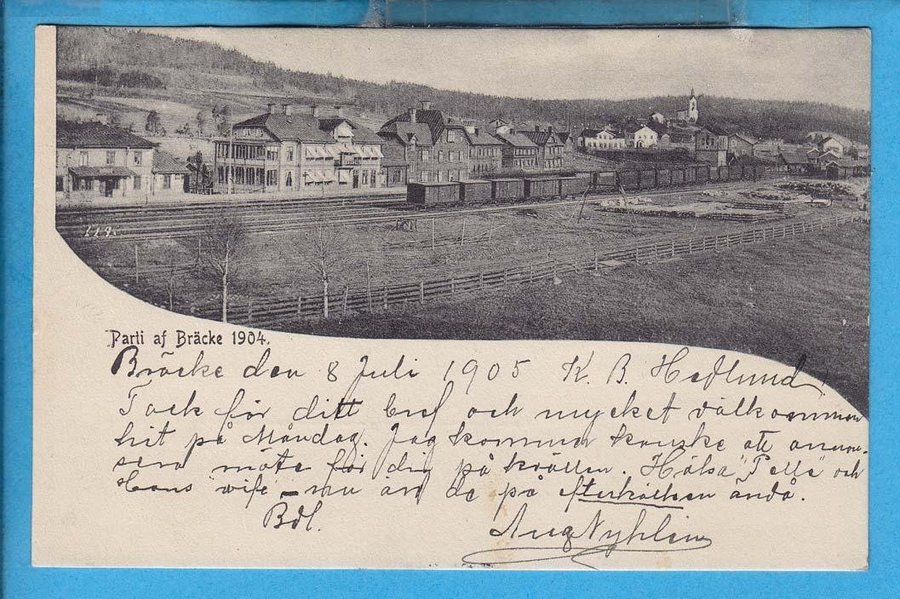 119.
Parti af Bräcke 1904.
Bräcke den 8 Juli 1905 K. B. Hedlund
Tack för ditt bref och mycket välkommen
hit på Måndag. Jag kommer kanske att
möte för dig på kvällen. Hälsa "Pelle" och
Hans "wife" – nu än de på efterkälken ändå.
Bdl.
Aug Nyhlin